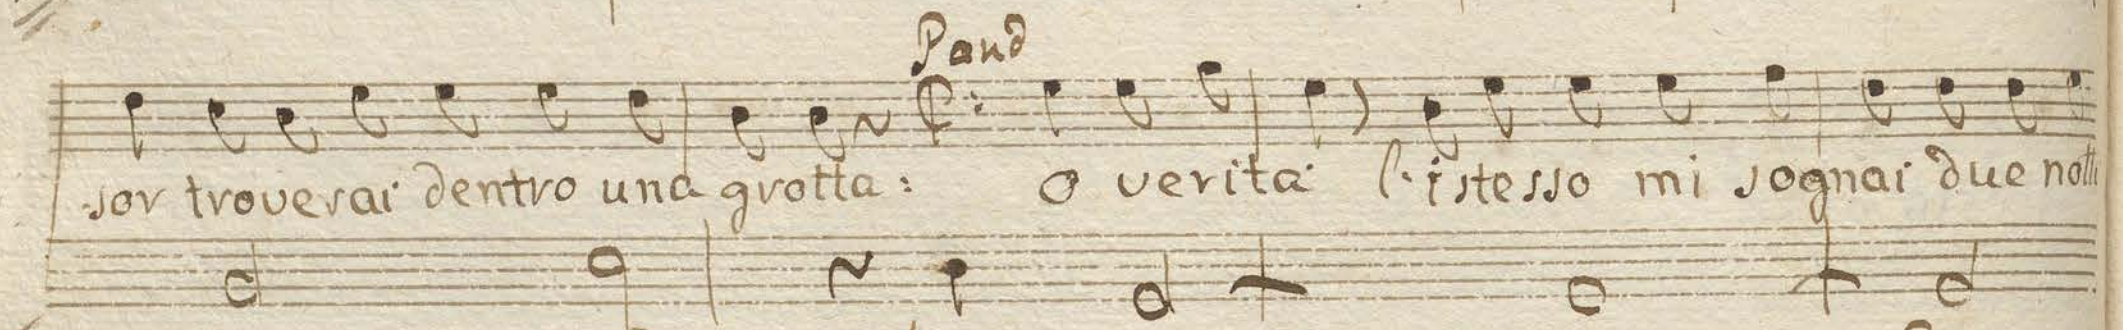 Pand
sor troverai dentro una grotta: o verita l'istesso mi sognai due notti